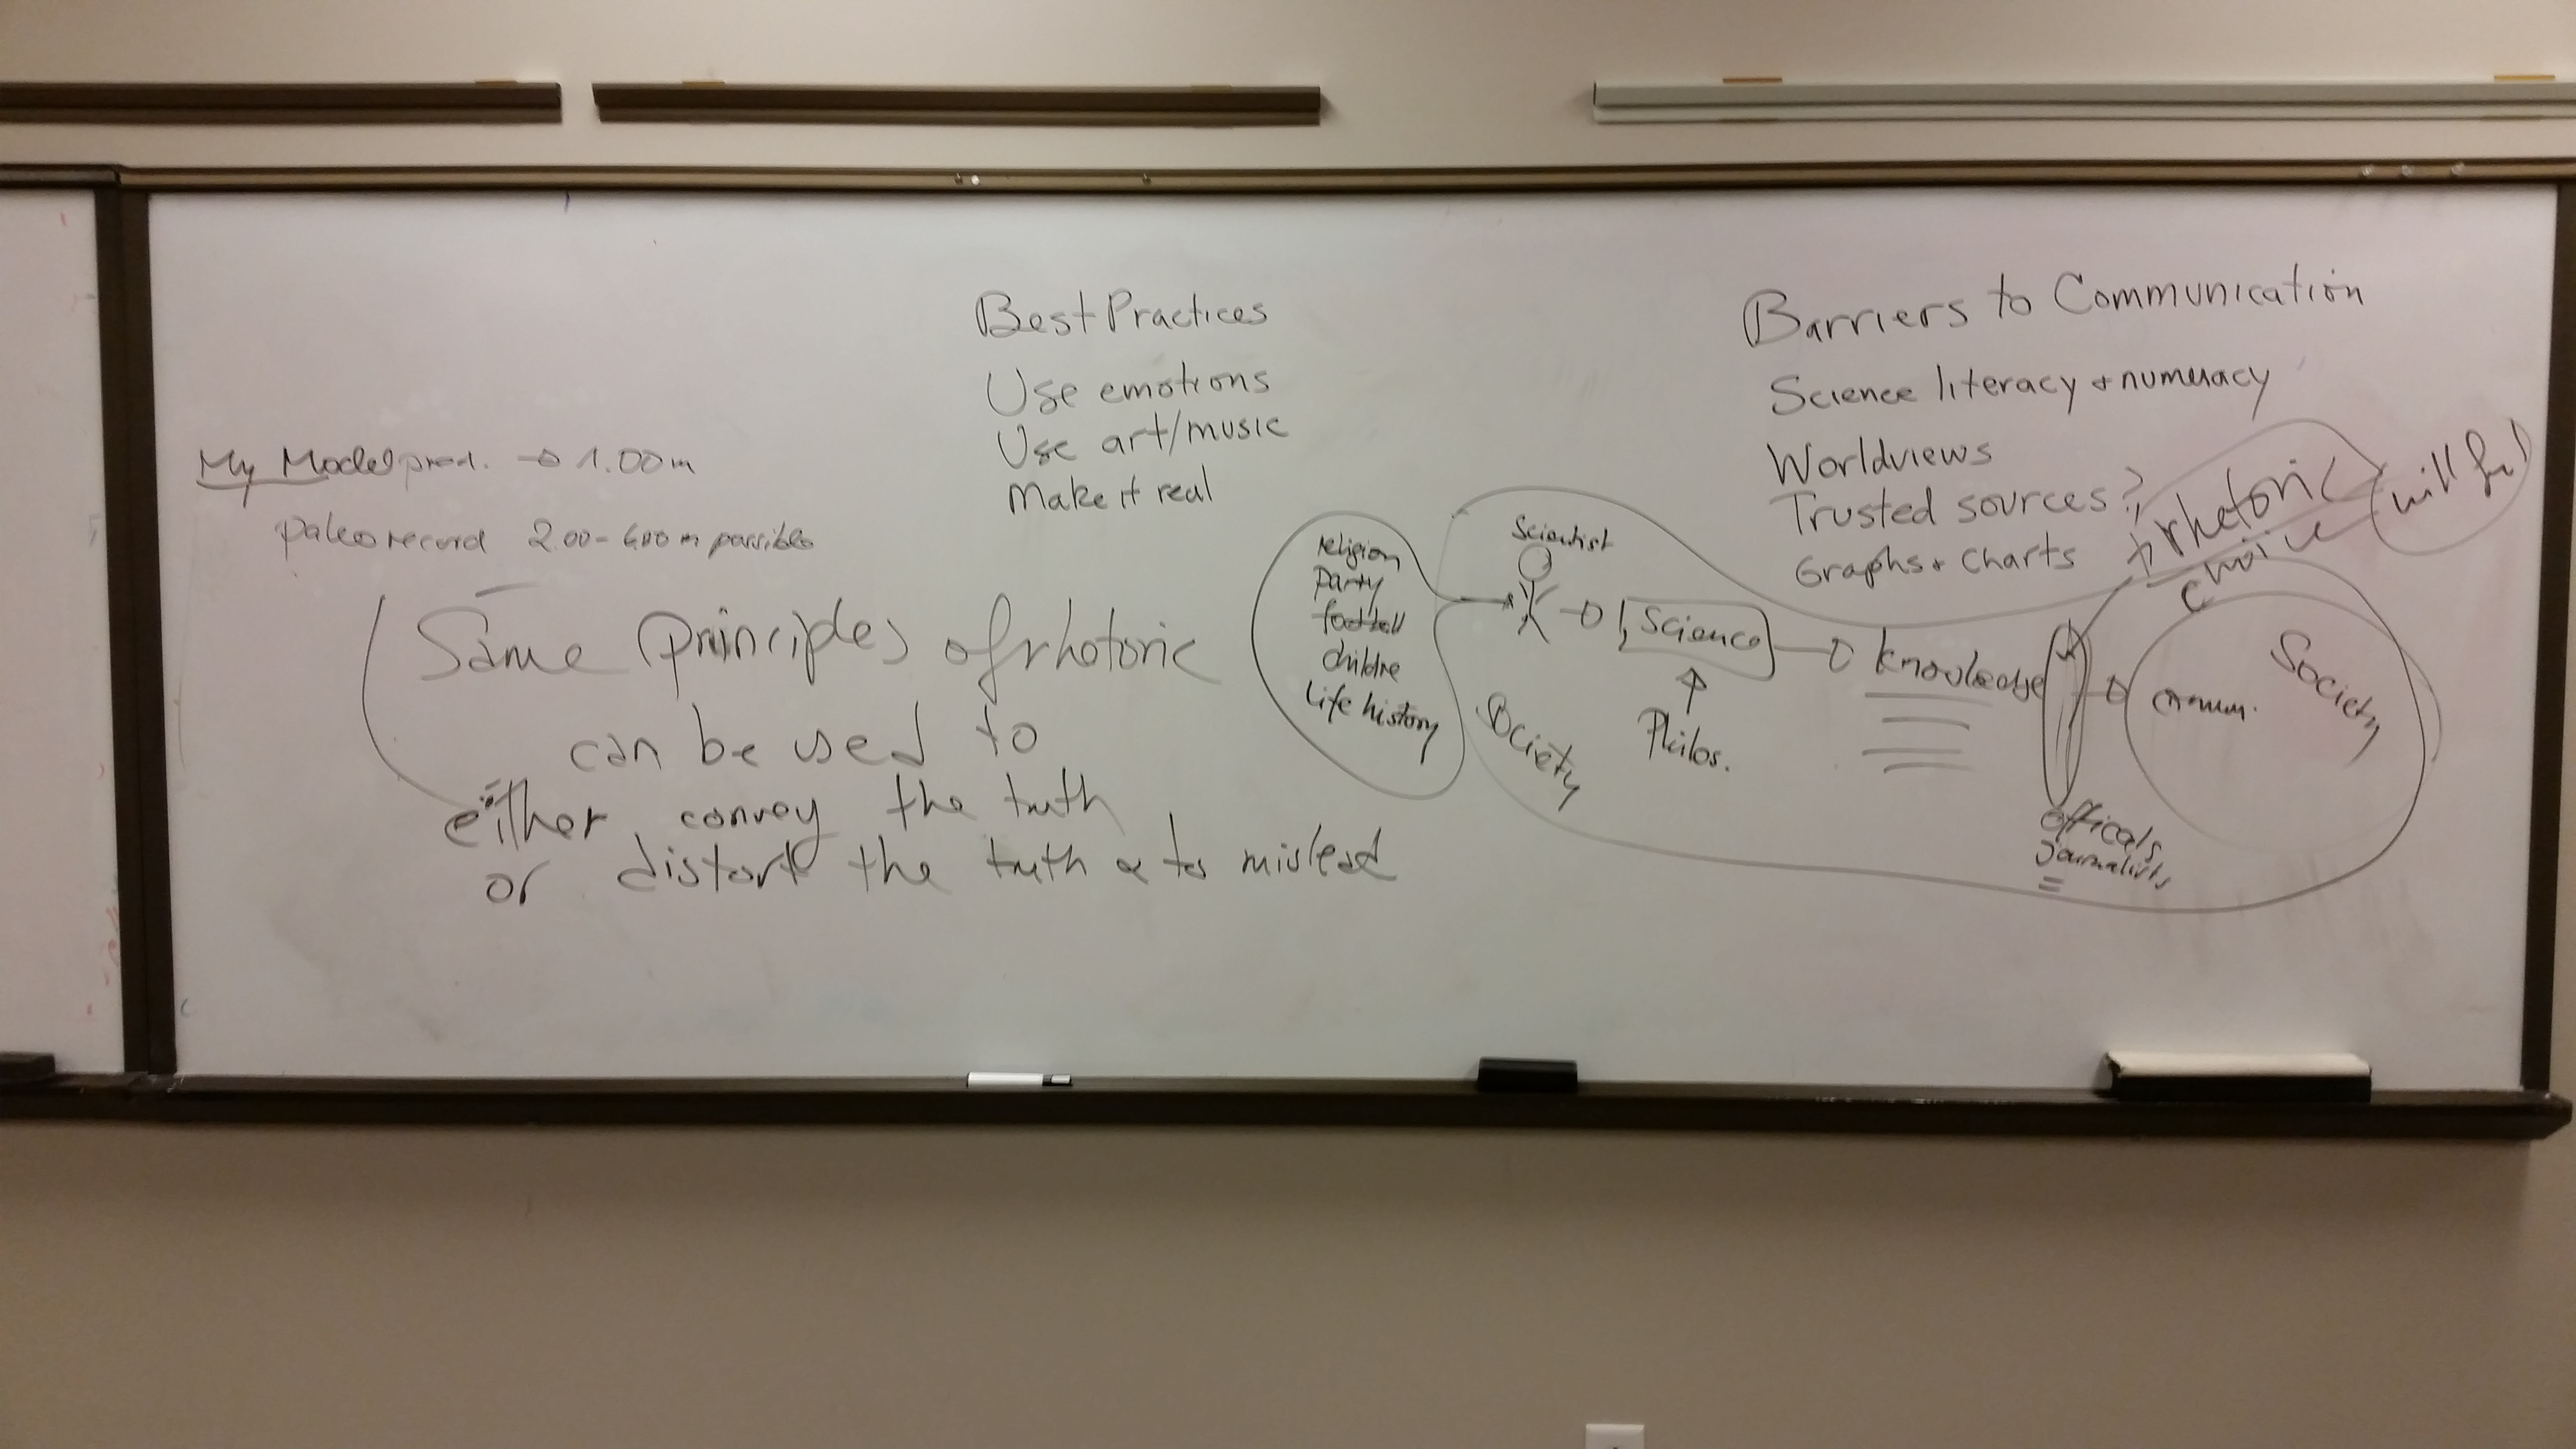 My Model pred. → 1.00m
paleo record 2.00-6.00 m possible
Same principles of rhetoric
can be used to
either convey the truth
or distort the truth & to mislead
Best Practices
Use emotions
Use art/music
Make it real
Barriers to Communication
Science literacy + numeracy
Worldviews
Trusted sources?
Graphs + Charts
rhetoric
choice
willful
religion
party
football
childre
life history
Scientist
Science
Philos.
Society
knowledge
officals
journalists
comm.
Society